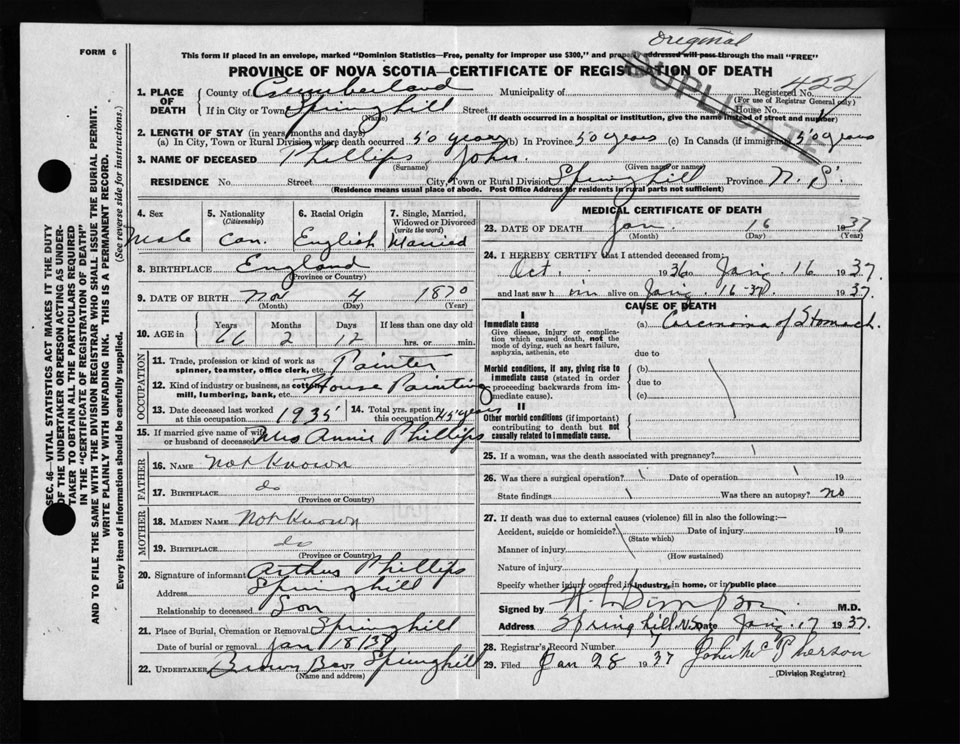 FORM 6
original
This form if placed in an envelope, marked "Dominion Statistics—Free, penalty for improper use $300," and properly addressed will pass through the mail "FREE"
DUPLICATE
PROVINCE OF NOVA SCOTIA—CERTIFICATE OF REGISTRATION OF DEATH
1. PLACE OF DEATH County of Cumberland Municipality of Registered No. 422
(For use of Registrar General only)
If in City or Town Springhill Street House No.
(Name) (If death occurred in a hospital or institution, give the name instead of street and number)
2. LENGTH OF STAY (in years, months and days)
(a) In City, Town or Rural Division where death occurred 50 years (b) In Province 50 years (c) In Canada (if immigrant) 50 years
3. NAME OF DECEASED Phillips John.
(Surname) (Given name or names)
RESIDENCE No. Street City, Town or Rural Division Springhill Province N. S.
(Residence means usual place of abode. Post Office Address for residents in rural parts not sufficient)
4. Sex Male
5. Nationality (Citizenship) Can.
6. Racial Origin English
7. Single, Married, Widowed or Divorced (write the word) Married
8. BIRTHPLACE England
(Province or Country)
9. DATE OF BIRTH Nov 4 1870
(Month) (Day) (Year)
10. AGE in Years Months Days If less than one day old
66 2 12 hrs. or min.
OCCUPATION
11. Trade, profession or kind of work as spinner, teamster, office clerk, etc. Painter
12. Kind of industry or business, as cotton mill, lumbering, bank, etc. House Painting
13. Date deceased last worked at this occupation 1935
14. Total yrs. spent in this occupation 45 years
15. If married give name of wife or husband of deceased Mrs Annie Phillips
FATHER
16. NAME Not Known
17. BIRTHPLACE do
(Province or Country)
MOTHER
18. MAIDEN NAME Not Known
19. BIRTHPLACE do
(Province or Country)
20. Signature of informant Arthur Phillips
Address Springhill
Relationship to deceased Son
21. Place of Burial, Cremation or Removal Springhill
Date of burial or removal Jan 18/37
22. UNDERTAKER Brown Bros Springhill
(Name and address)
MEDICAL CERTIFICATE OF DEATH
23. DATE OF DEATH Jan. 16 1937
(Month) (Day) (Year)
24. I HEREBY CERTIFY that I attended deceased from:
Oct. 1936 to Jan. 16 1937.
and last saw h im alive on Jan. 16-37 1937.
CAUSE OF DEATH
I
Immediate cause (a) Carcinoma of Stomach.
Give disease, injury or complication which caused death, not the mode of dying, such as heart failure, asphyxia, asthenia, etc
due to
Morbid conditions, if any, giving rise to immediate cause (stated in order proceeding backwards from immediate cause).
(b)
due to
(c)
II
Other morbid conditions (if important) contributing to death but not causally related to immediate cause.
25. If a woman, was the death associated with pregnancy?
26. Was there a surgical operation? Date of operation 19
State findings Was there an autopsy? no
27. If death was due to external causes (violence) fill in also the following:—
Accident, suicide or homicide? Date of injury 19
(State which)
Manner of injury
(How sustained)
Nature of injury
Specify whether injury occurred in industry, in home, or in public place
Signed by M.D.
Address Springhill N.S. Date Jan. 17 1937.
28. Registrar's Record Number 7
29. Filed Jan 28 1937 John McPherson
(Division Registrar)
SEC. 46—VITAL STATISTICS ACT MAKES IT THE DUTY
OF THE UNDERTAKER OR PERSON ACTING AS UNDER-
TAKER TO OBTAIN ALL THE PARTICULARS REQUIRED
IN THE "CERTIFICATE OF REGISTRATION OF DEATH"
AND TO FILE THE SAME WITH THE DIVISION REGISTRAR WHO SHALL ISSUE THE BURIAL PERMIT.
WRITE PLAINLY WITH UNFADING INK. THIS IS A PERMANENT RECORD.
Every item of information should be carefully supplied. (See reverse side for instructions.)